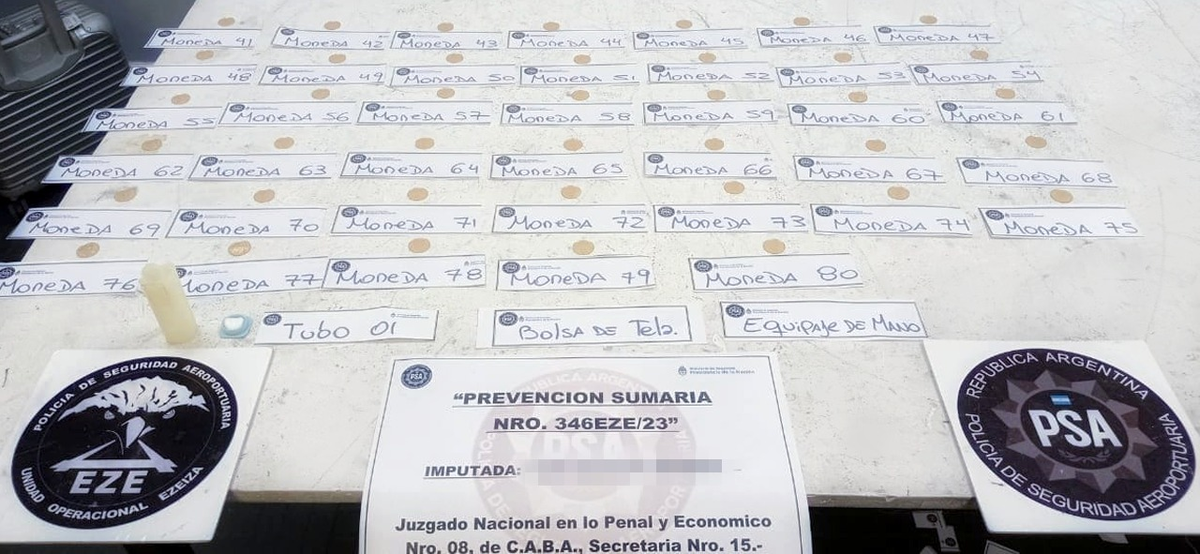 MONEDA 41
MONEDA 42
MONEDA 43
MONEDA 44
MONEDA 45
MONEDA 46
MONEDA 47
MONEDA 48
MONEDA 49
MONEDA 50
MONEDA 51
MONEDA 52
MONEDA 53
MONEDA 54
MONEDA 55
MONEDA 56
MONEDA 57
MONEDA 58
MONEDA 59
MONEDA 60
MONEDA 61
MONEDA 62
MONEDA 63
MONEDA 64
MONEDA 65
MONEDA 66
MONEDA 67
MONEDA 68
MONEDA 69
MONEDA 70
MONEDA 71
MONEDA 72
MONEDA 73
MONEDA 74
MONEDA 75
MONEDA 76
MONEDA 77
MONEDA 78
MONEDA 79
MONEDA 80
TUBO 01
BOLSA DE TELA.
EQUIPAJE DE MANO
POLICIA DE SEGURIDAD AEROPORTUARIA
EZE
UNIDAD OPERACIONAL EZEIZA
PSA
"PREVENCION SUMARIA
NRO. 346EZE/23"
IMPUTADA:
Juzgado Nacional en lo Penal y Economico
Nro. 08, de C.A.B.A., Secretaria Nro. 15.-
REPUBLICA ARGENTINA
PSA
POLICIA DE SEGURIDAD AEROPORTUARIA